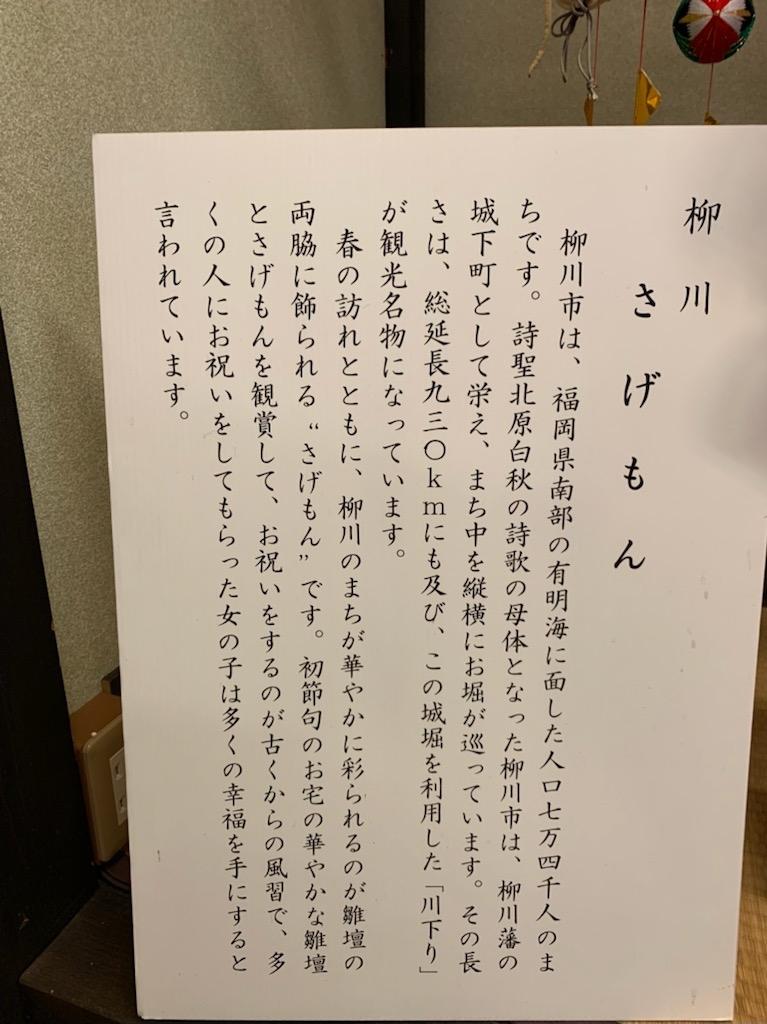 柳川
さげもん
柳川市は、福岡県南部の有明海に面した人口七万四千人のま
ちです。詩聖北原白秋の詩歌の母体となった柳川市は、柳川藩の
城下町として栄え、まち中を縦横にお堀が巡っています。その長
さは、総延長九三〇kmにも及び、この城堀を利用した「川下り」
が観光名物になっています。
春の訪れとともに、柳川のまちが華やかに彩られるのが雛壇の
両脇に飾られる“さげもん”です。初節句のお宅の華やかな雛壇
とさげもんを観賞して、お祝いをするのが古くからの風習で、多
くの人にお祝いをしてもらった女の子は多くの幸福を手にすると
言われています。